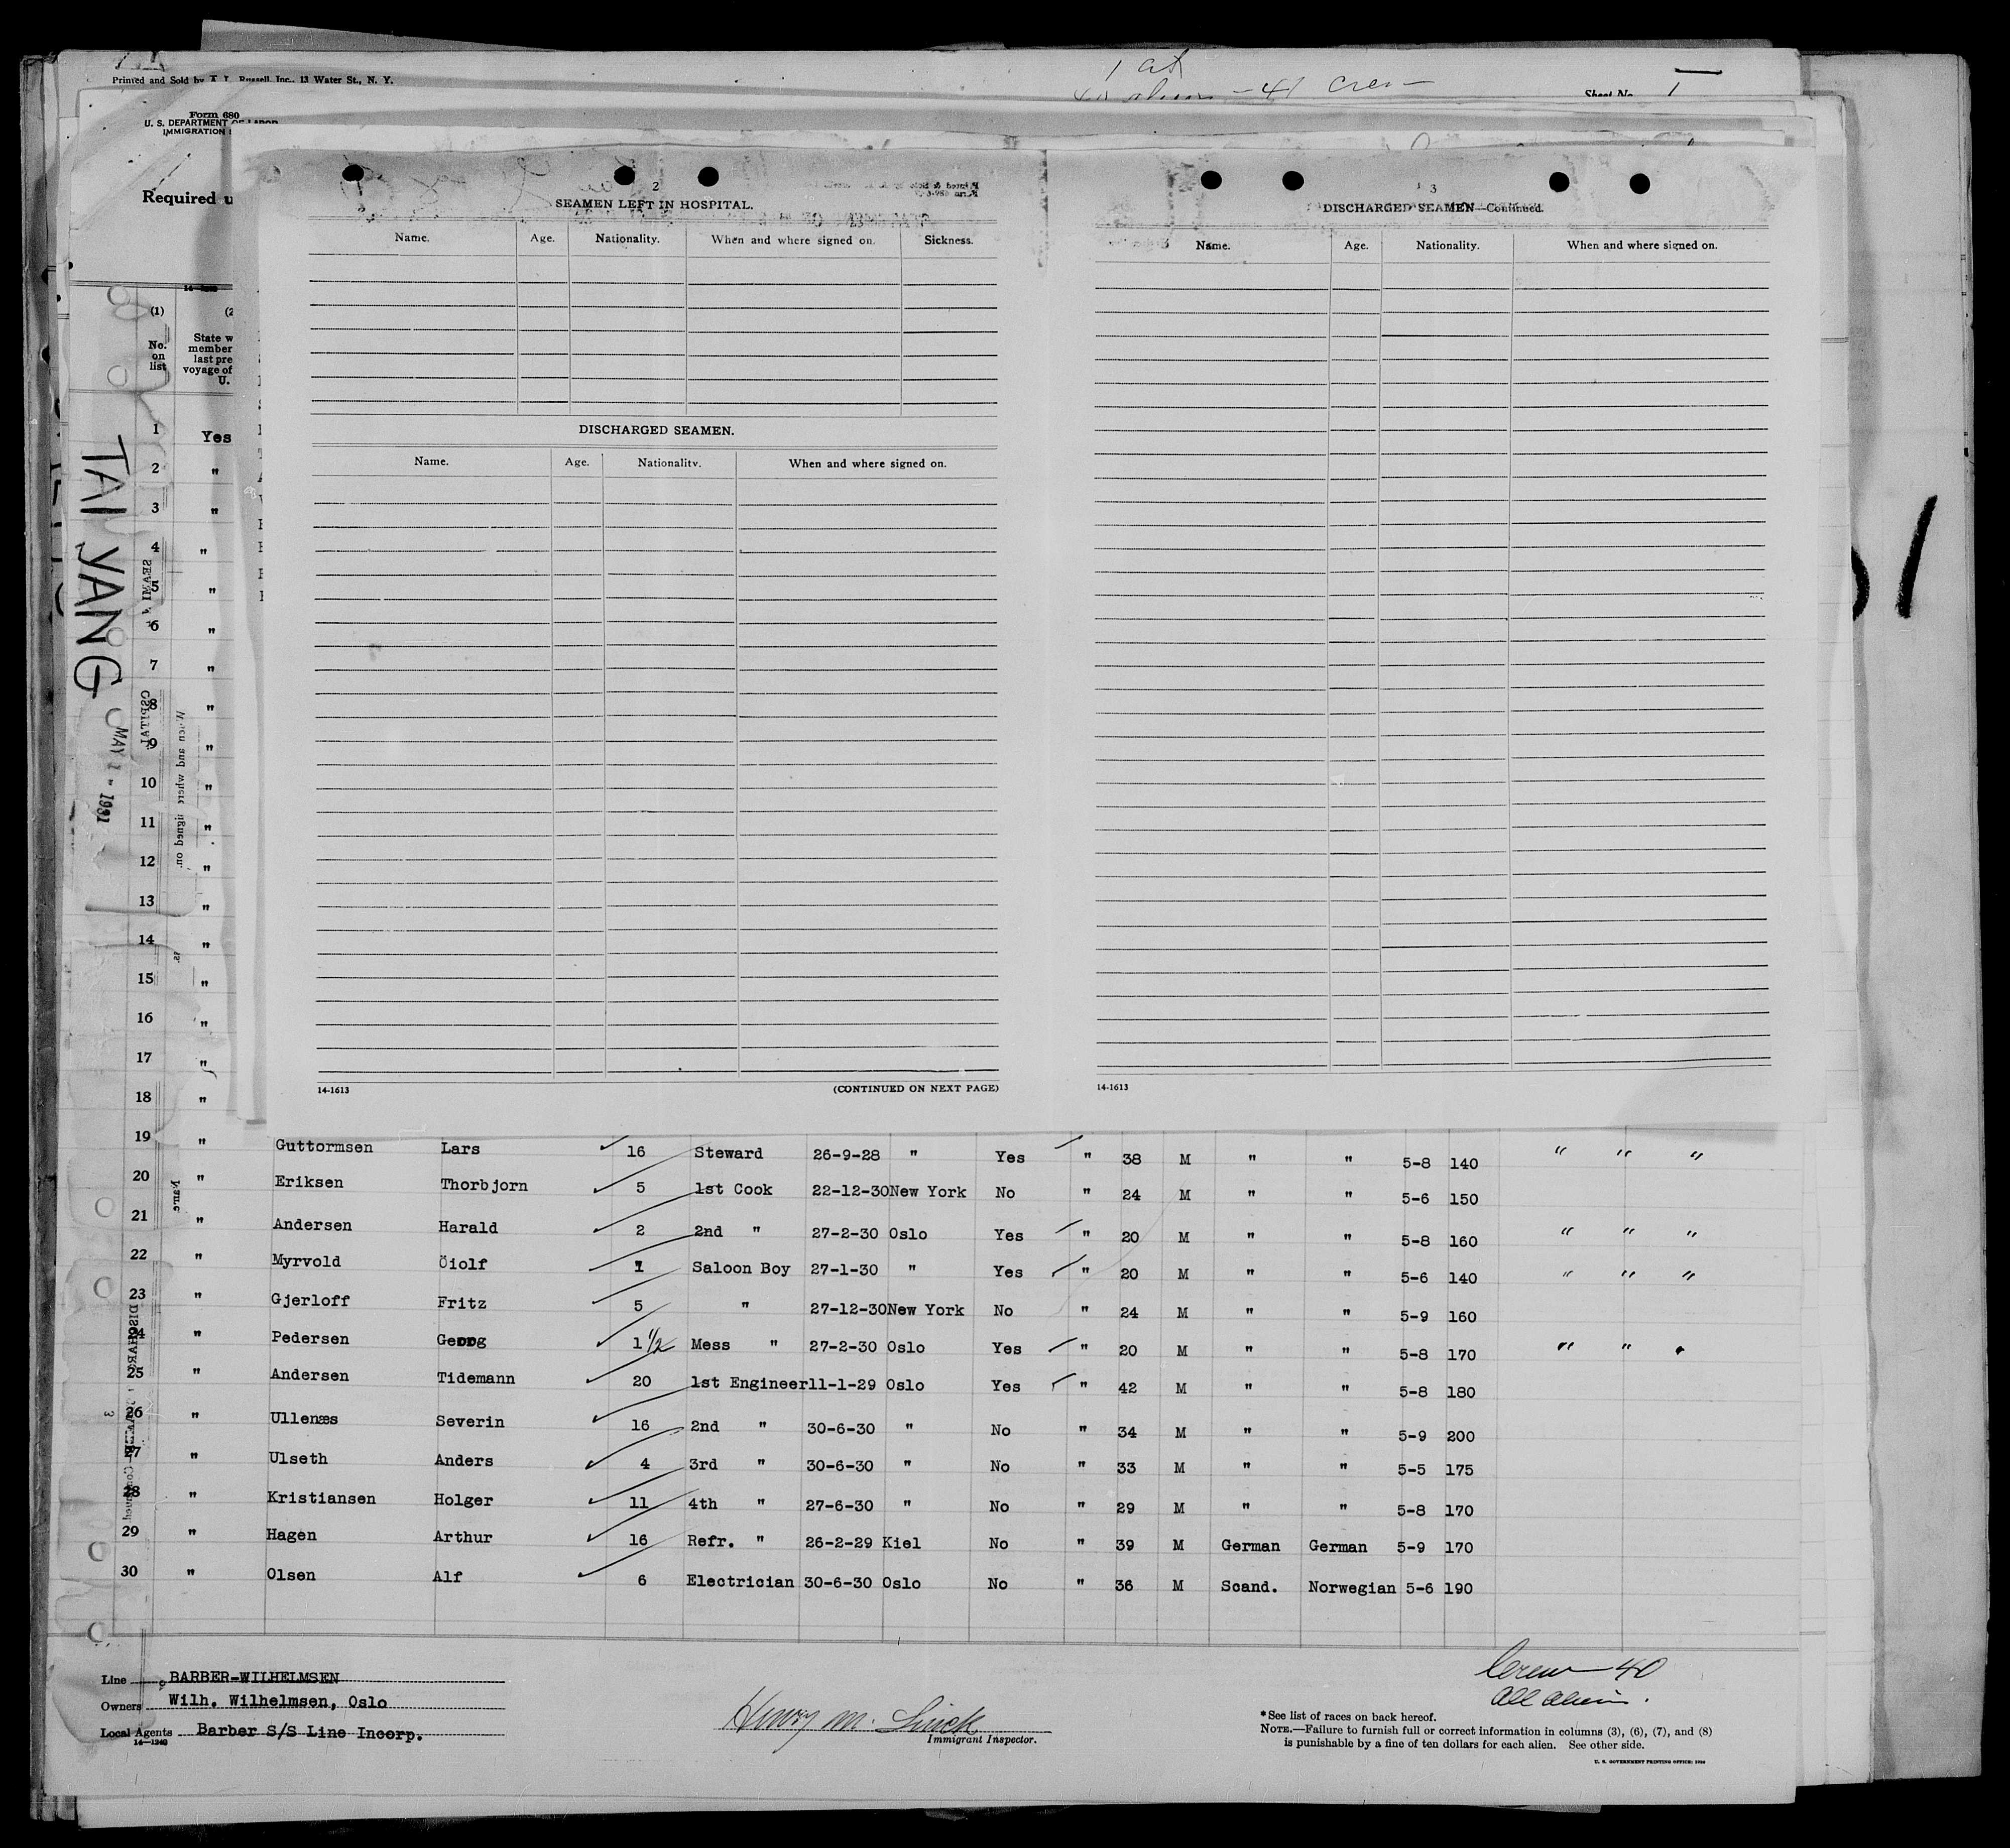 Printed and Sold by T. L. Russell, Inc., 13 Water St., N. Y.
1 at
41 crew
Sheet No. 1
Form 680
U. S. DEPARTMENT OF LABOR
IMMIGRATION
Required u
2
SEAMEN LEFT IN HOSPITAL.
Name. Age. Nationality. When and where signed on. Sickness.
DISCHARGED SEAMEN.
Name. Age. Nationality. When and where signed on.
14-1613 (CONTINUED ON NEXT PAGE)
3
DISCHARGED SEAMEN—Continued.
Name. Age. Nationality. When and where signed on.
14-1613
(1) (2
No. on list
State w
member
last pre
voyage of
U.
TAI YANG
MAY 1 - 1931
1 Yes
2 "
3 "
4 "
5 "
6 "
7 "
8 "
9 "
10 "
11 "
12 "
13 "
14 "
15 "
16 "
17 "
18 "
19 " Guttormsen Lars 16 Steward 26-9-28 " Yes " 38 M " " 5-8 140 " " "
20 " Eriksen Thorbjorn 5 1st Cook 22-12-30 New York No " 24 M " " 5-6 150
21 " Andersen Harald 2 2nd " 27-2-30 Oslo Yes " 20 M " " 5-8 160 " " "
22 " Myrvold Öiolf 1 Saloon Boy 27-1-30 " Yes " 20 M " " 5-6 140 " " "
23 " Gjerloff Fritz 5 " 27-12-30 New York No " 24 M " " 5-9 160
24 " Pedersen Georg 1 1/2 Mess " 27-2-30 Oslo Yes " 20 M " " 5-8 170 " " "
25 " Andersen Tidemann 20 1st Engineer 11-1-29 Oslo Yes " 42 M " " 5-8 180
26 " Ullenæs Severin 16 2nd " 30-6-30 " No " 34 M " " 5-9 200
27 " Ulseth Anders 4 3rd " 30-6-30 " No " 33 M " " 5-5 175
28 " Kristiansen Holger 11 4th " 27-6-30 " No " 29 M " " 5-8 170
29 " Hagen Arthur 16 Refr. " 26-2-29 Kiel No " 39 M German German 5-9 170
30 " Olsen Alf 6 Electrician 30-6-30 Oslo No " 36 M Scand. Norwegian 5-6 190
Line BARBER-WILHELMSEN
Owners Wilh. Wilhelmsen, Oslo
Local Agents Barber S/S Line Incorp.
14-1240
Henry M.
Immigrant Inspector.
Crew 40
All Aliens.
*See list of races on back hereof.
NOTE.—Failure to furnish full or correct information in columns (3), (6), (7), and (8)
is punishable by a fine of ten dollars for each alien. See other side.
U. S. GOVERNMENT PRINTING OFFICE: 1930